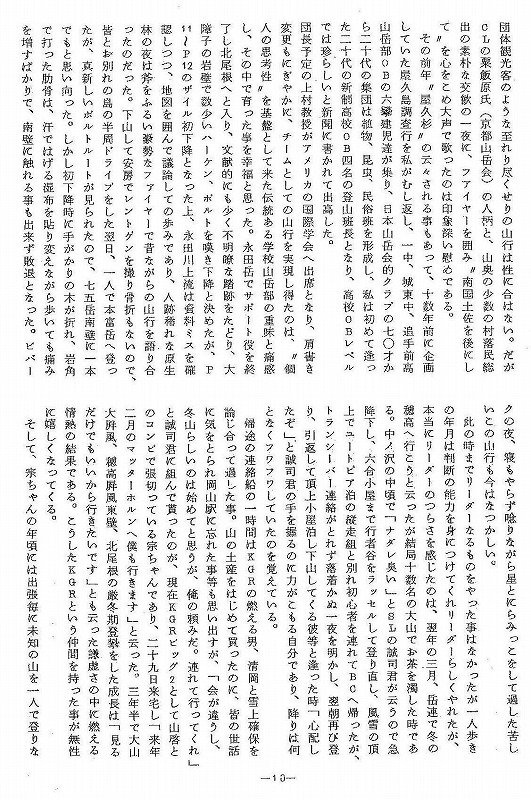 団体観光客のような至れり尽くせりの山行は性に合はない。だが
CLの粟飯原氏（京都山岳会）の人柄と、山奥の少数の村落民総
出の素朴な交歓の一夜に、ファイヤーを囲み〝南国土佐を後にし
て〟を心をこめ大声で歌ったのは印象深い慰めである。
その前年〝屋久杉〟の云々される事もあって、十数年前に企画
していた屋久島調査行を私がむし返し、一中、城東中、追手前高
山岳部OBの六輩建児達が集り、日本山岳会的クラブの七〇才か
ら二十代の集団は植物、昆虫、民俗班を形成し、私は初めて逢っ
た二十代の新制高校OB四名の登山班長となり、高校OBレベル
では珍らしいと新聞に書かれて出高した。
団長予定の上村教授がアメリカの国際学会へ出席となり、肩書き
変更もにぎやかに、チームとしての山行を実現し得たのは、〝個
人の思考性〟を基盤として来た伝統ある学校山岳部の重味と痛感
し、その中で育った事を幸福と思った。永田岳でサポート役を終
了し北尾根へと入り、文献的にも少く不明瞭な踏跡をたどり、大
障子の岩壁で数少いハーケン、ボルトを嘆き下降と決めたが、P
11〜P12のザイル初下降となった上、永田川上流は資料ミスを確
認しつつ、地図を囲んで議論しての歩みであり、人跡稀れな原生
林の夜は斧をふるい豪勢なファイヤーで昔ながらの山行を語り合
ったのだった。下山して安房でレントゲンを撮り骨折もないので、
皆とお別れの島の半周ドライブをした翌日、一人で本富岳へ登っ
たが、真新しいボルトルートが見られたので、七五岳南壁に一本
でもと思い向った。しかし初下降時に手がかりの木が折れ、岩角
で打った肋骨は、汗ではげる湿布を貼り変えながら歩いても痛み
を増すばかりで、南壁に触れる事も出来ず敗退となった。ビバー
クの夜、寝もやらず唸りながら星とにらみっこをして過した苦し
いこの山行も今はなつかしい。
此の時までリーダーなるものをやった事はなかったが一人歩き
の年月は判断の能力を身につけてくれリーダーらしくやれたが、
本当にリーダーのつらさを感じたのは、翌年の三月、岳連で冬の
穂高へ行こうと云ったが結局十数名の大山でお茶を濁した時であ
る。中ノ沢の中頃で「ナダレ臭い」とSLの誠司君が云うので急
降下し、六合小屋まで行者谷をラッセルして登り直し、風雪の頂
上でユートピア泊の縦走組と別れ初心者を連れてBCへ帰ったが、
トランシーバー連絡がとれず落着かぬ一夜を明かし、翌朝再び登
り、引返して頂上小屋泊し下山してくる彼等と逢った時「心配し
たぞ」と誠司君の手を握るのに力がこもる自分であり、降りは何
となくフワフワしていたのを覚えている。
帰途の連絡船の一時間はKGRの燃える男、清岡と雪上確保を
論じ合って過した事。山の土産をはじめて買ったのに、皆の世話
に気をとられ岡山駅に忘れた事等も思い出すが、「会が違うし、
冬山らしいのは始めてと思うが、俺の頼みだ。連れて行ってくれ」
と誠司君に組んで貰ったのが、現在KGRビッグ2として山啓と
のコンビで張切っている宗ちゃんであり、二十九日来宅し「来年
二月のマッターホルンへ僕も行きます」と云った。三年半で大山
大屏風、穂高屏風東壁、北尾根の厳冬期登攀をした成長は「見る
だけでもいいから行きたいです」とも云った謙虚さの中に燃える
情熱の結果である。こうしたKGRという仲間を持った事が無性
に嬉しくなってくる。
そして、宗ちゃんの年頃には出張毎に未知の山を一人で登りな
—10—